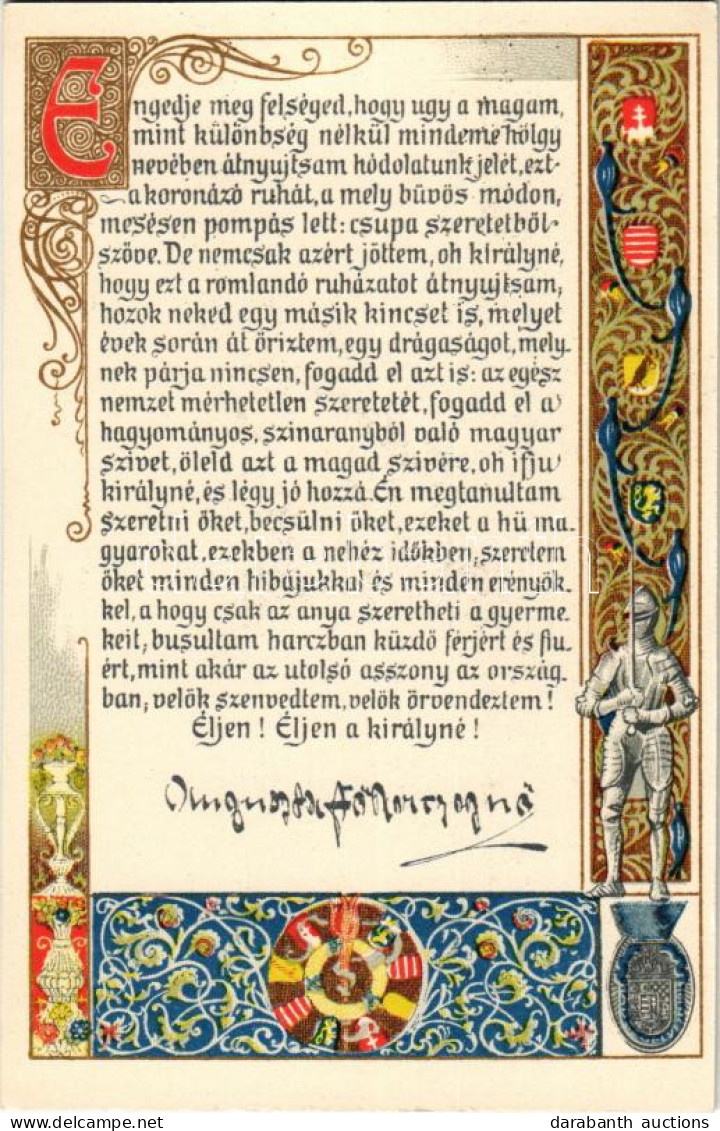 Engedje meg felséged, hogy ugy a magam,
mint különbség nélkül mindeme hölgy
nevében átnyujtsam hódolatunk jelét, ezt
a koronázó ruhát, a mely bűvös módon,
mesésen pompás lett: csupa szeretetből
szőve. De nemcsak azért jöttem, oh királyné,
hogy ezt a romlandó ruházatot átnyujtsam,
hozok neked egy másik kincset is, melyet
évek során át őriztem, egy drágaságot, mely-
nek párja nincsen, fogadd el azt is: az egész
nemzet mérhetetlen szeretetét, fogadd el a
hagyományos, szinaranyból való magyar
szivet, öleld azt a magad szivére, oh ifju
királyné, és légy jó hozzá. Én megtanultam
szeretni őket, becsülni őket, ezeket a hű ma-
gyarokat, ezekben a nehéz időkben, szeretem
őket minden hibájukkal és minden erényök-
kel, a hogy csak az anya szeretheti a gyerme-
keit; busultam harczban küzdő férjért és fiu-
ért, mint akár az utolsó asszony az ország-
ban; velök szenvedtem, velök örvendeztem!
Éljen! Éljen a királyné!
Auguszta főherczegnő
darabanth auctions